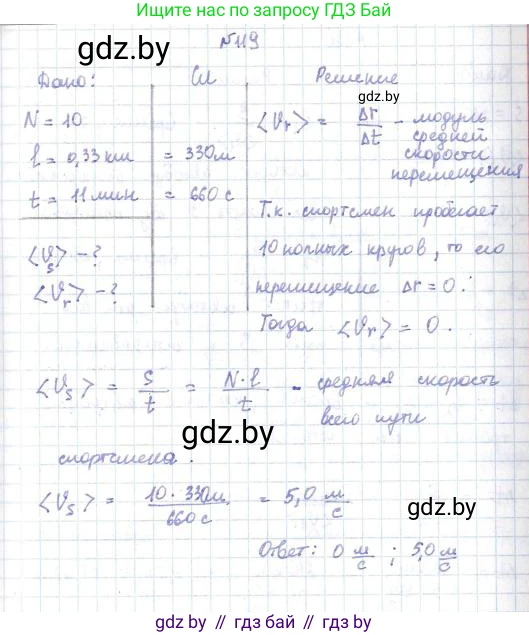 Ищите нас по запросу ГДЗ Бай
gdz.by
№119
Дано:
СИ
Решение
gdz.by
N = 10
l = 0,33 км = 330 м
t = 11 мин = 660 с
<υs> - ?
<υr> - ?
<υr> = Δr/Δt - модуль средней скорости перемещения
Т.к. спортсмен пробегает
10 полных кругов, то его
перемещение Δr = 0.
Тогда <υr> = 0.
<υs> = s/t = N·l/t - средняя скорость
всего пути
gdz.by
спортсмена.
<υs> = 10·330м/660 с = 5,0 м/с
gdz.by
Ответ: 0 м/с ; 5,0 м/с
gdz.by // гдз бай // gdz.by